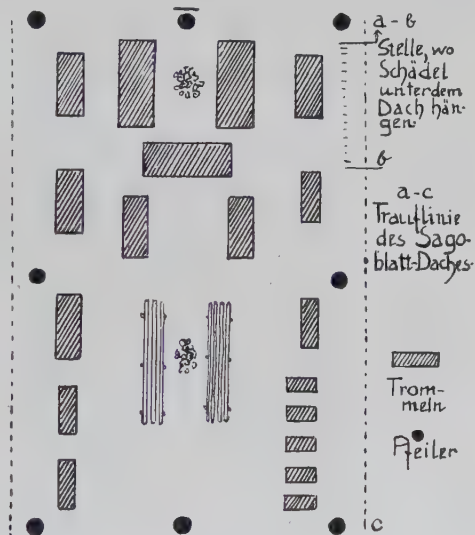 a - b
Stelle, wo
Schädel
unter dem
Dach hän-
gen.
b
a-c
Trauflinie
des Sago-
blatt-Daches.
Trom-
meln
Pfeiler
c